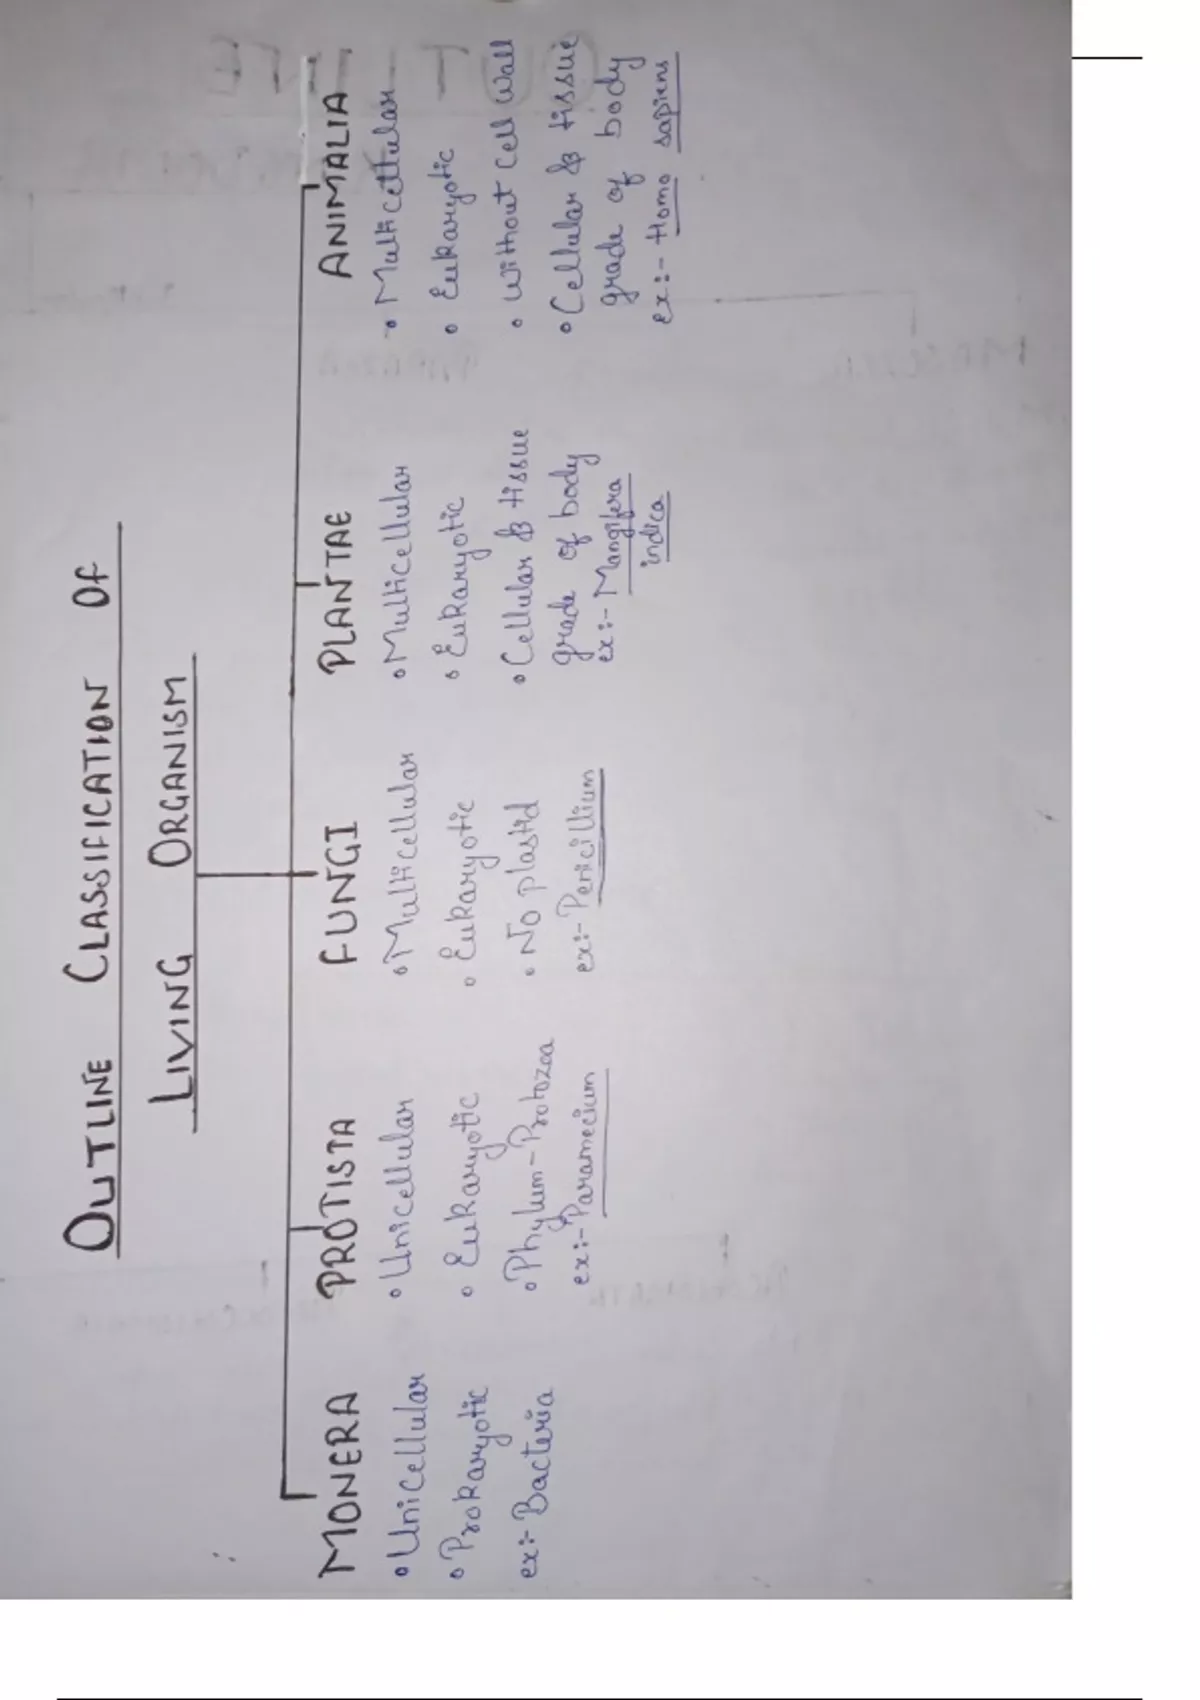 OUTLINE CLASSIFICATION OF
LIVING ORGANISM
MONERA
• Unicellular
• Prokaryotic
ex:- Bacteria
PROTISTA
• Unicellular
• Eukaryotic
• Phylum-Protozoa
ex:- Paramecium
FUNGI
• Multicellular
• Eukaryotic
• No plastid
ex:- Penicillium
PLANTAE
• Multicellular
• Eukaryotic
• Cellular & tissue
grade of body
ex:- Mangifera
indica
ANIMALIA
• Multicellular
• Eukaryotic
• Without cell wall
• Cellular & tissue
grade of body
ex:- Homo sapiens